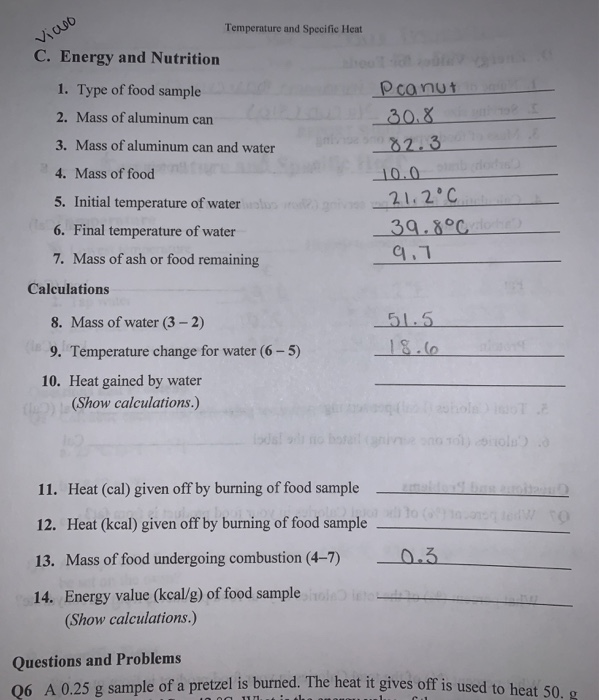 Temperature and Specific Heat
C. Energy and Nutrition
1. Type of food sample Peanut
2. Mass of aluminum can 30.8
3. Mass of aluminum can and water 82.3
4. Mass of food 10.0
5. Initial temperature of water 21.2°C
6. Final temperature of water 39.8°C
7. Mass of ash or food remaining 9.7
Calculations
8. Mass of water (3 – 2) 51.5
9. Temperature change for water (6 – 5) 18.6
10. Heat gained by water
(Show calculations.)
11. Heat (cal) given off by burning of food sample
12. Heat (kcal) given off by burning of food sample
13. Mass of food undergoing combustion (4–7) 0.3
14. Energy value (kcal/g) of food sample
(Show calculations.)
Questions and Problems
Q6 A 0.25 g sample of a pretzel is burned. The heat it gives off is used to heat 50. g